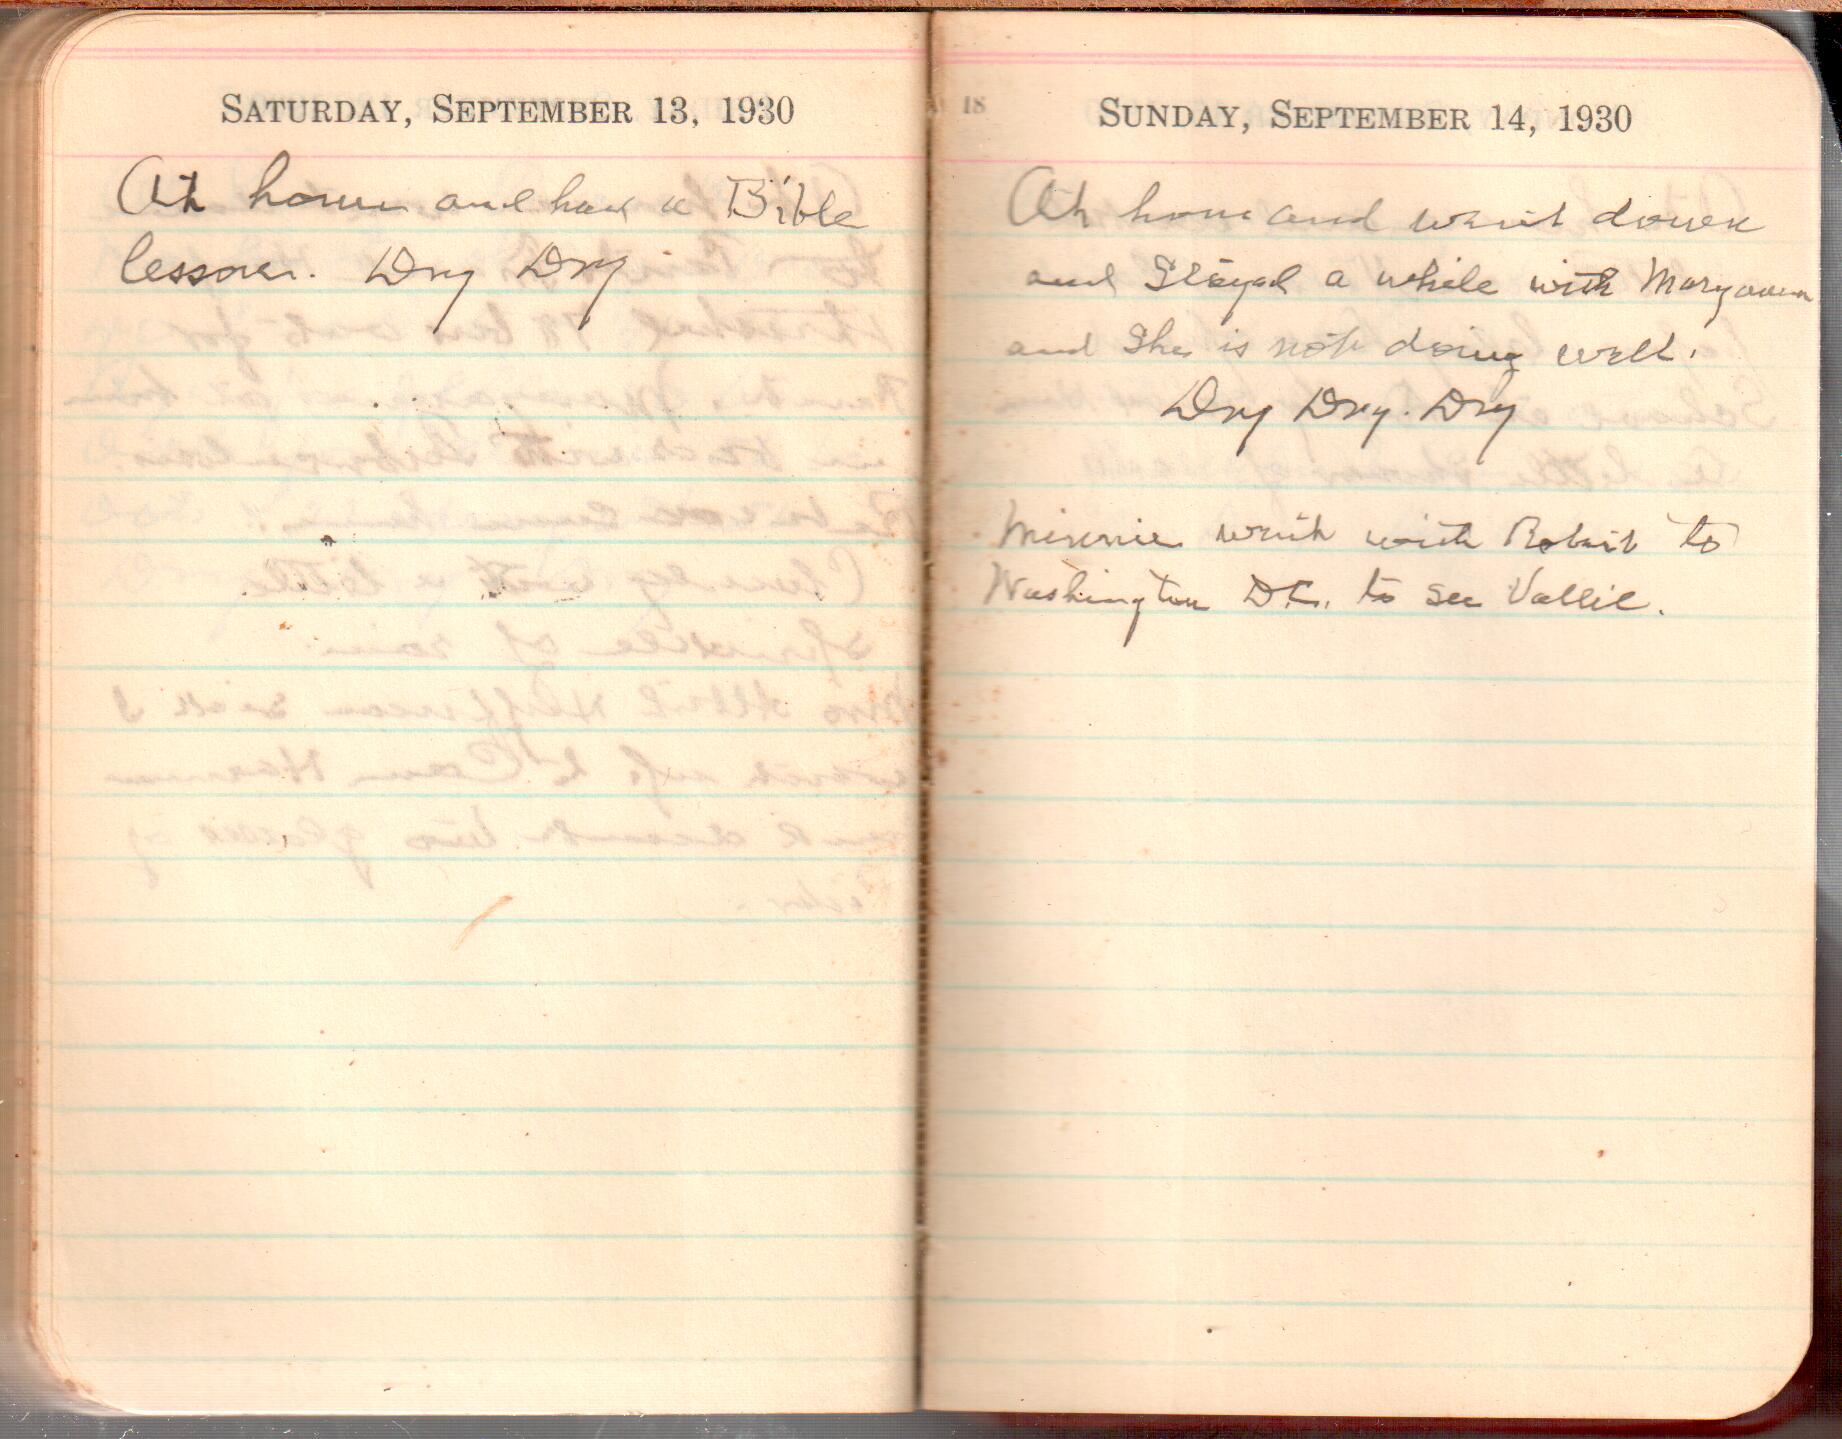 SATURDAY, SEPTEMBER 13, 1930
At home and had a Bible
lesson. Dry Dry
18
SUNDAY, SEPTEMBER 14, 1930
At home and went down
and Stayed a while with Maryann
and She is not doing well.
Dry Dry. Dry
Minnie went with Robert to
Washington D.C. to see Vallie.